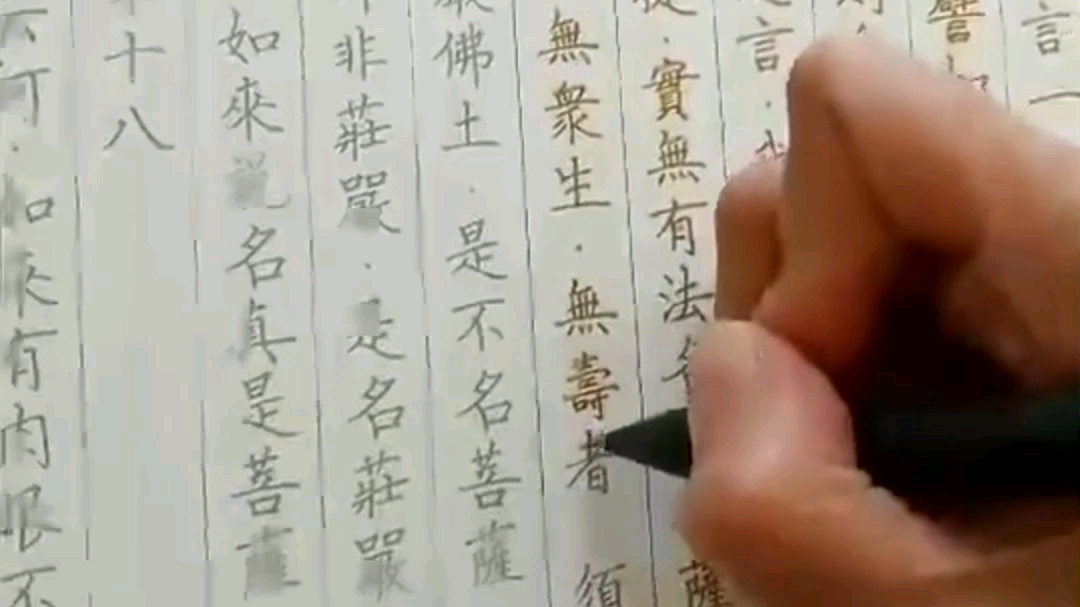 言一
譬
言．
實無有法
薩
無眾生．無壽者
須
佛土．是不名菩薩
非莊嚴．是名莊嚴
如來說名真是菩薩
十八
如來有肉眼不